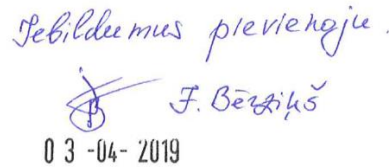 Iebildumus pievienoju.
J. Bērziņš
03 -04- 2019